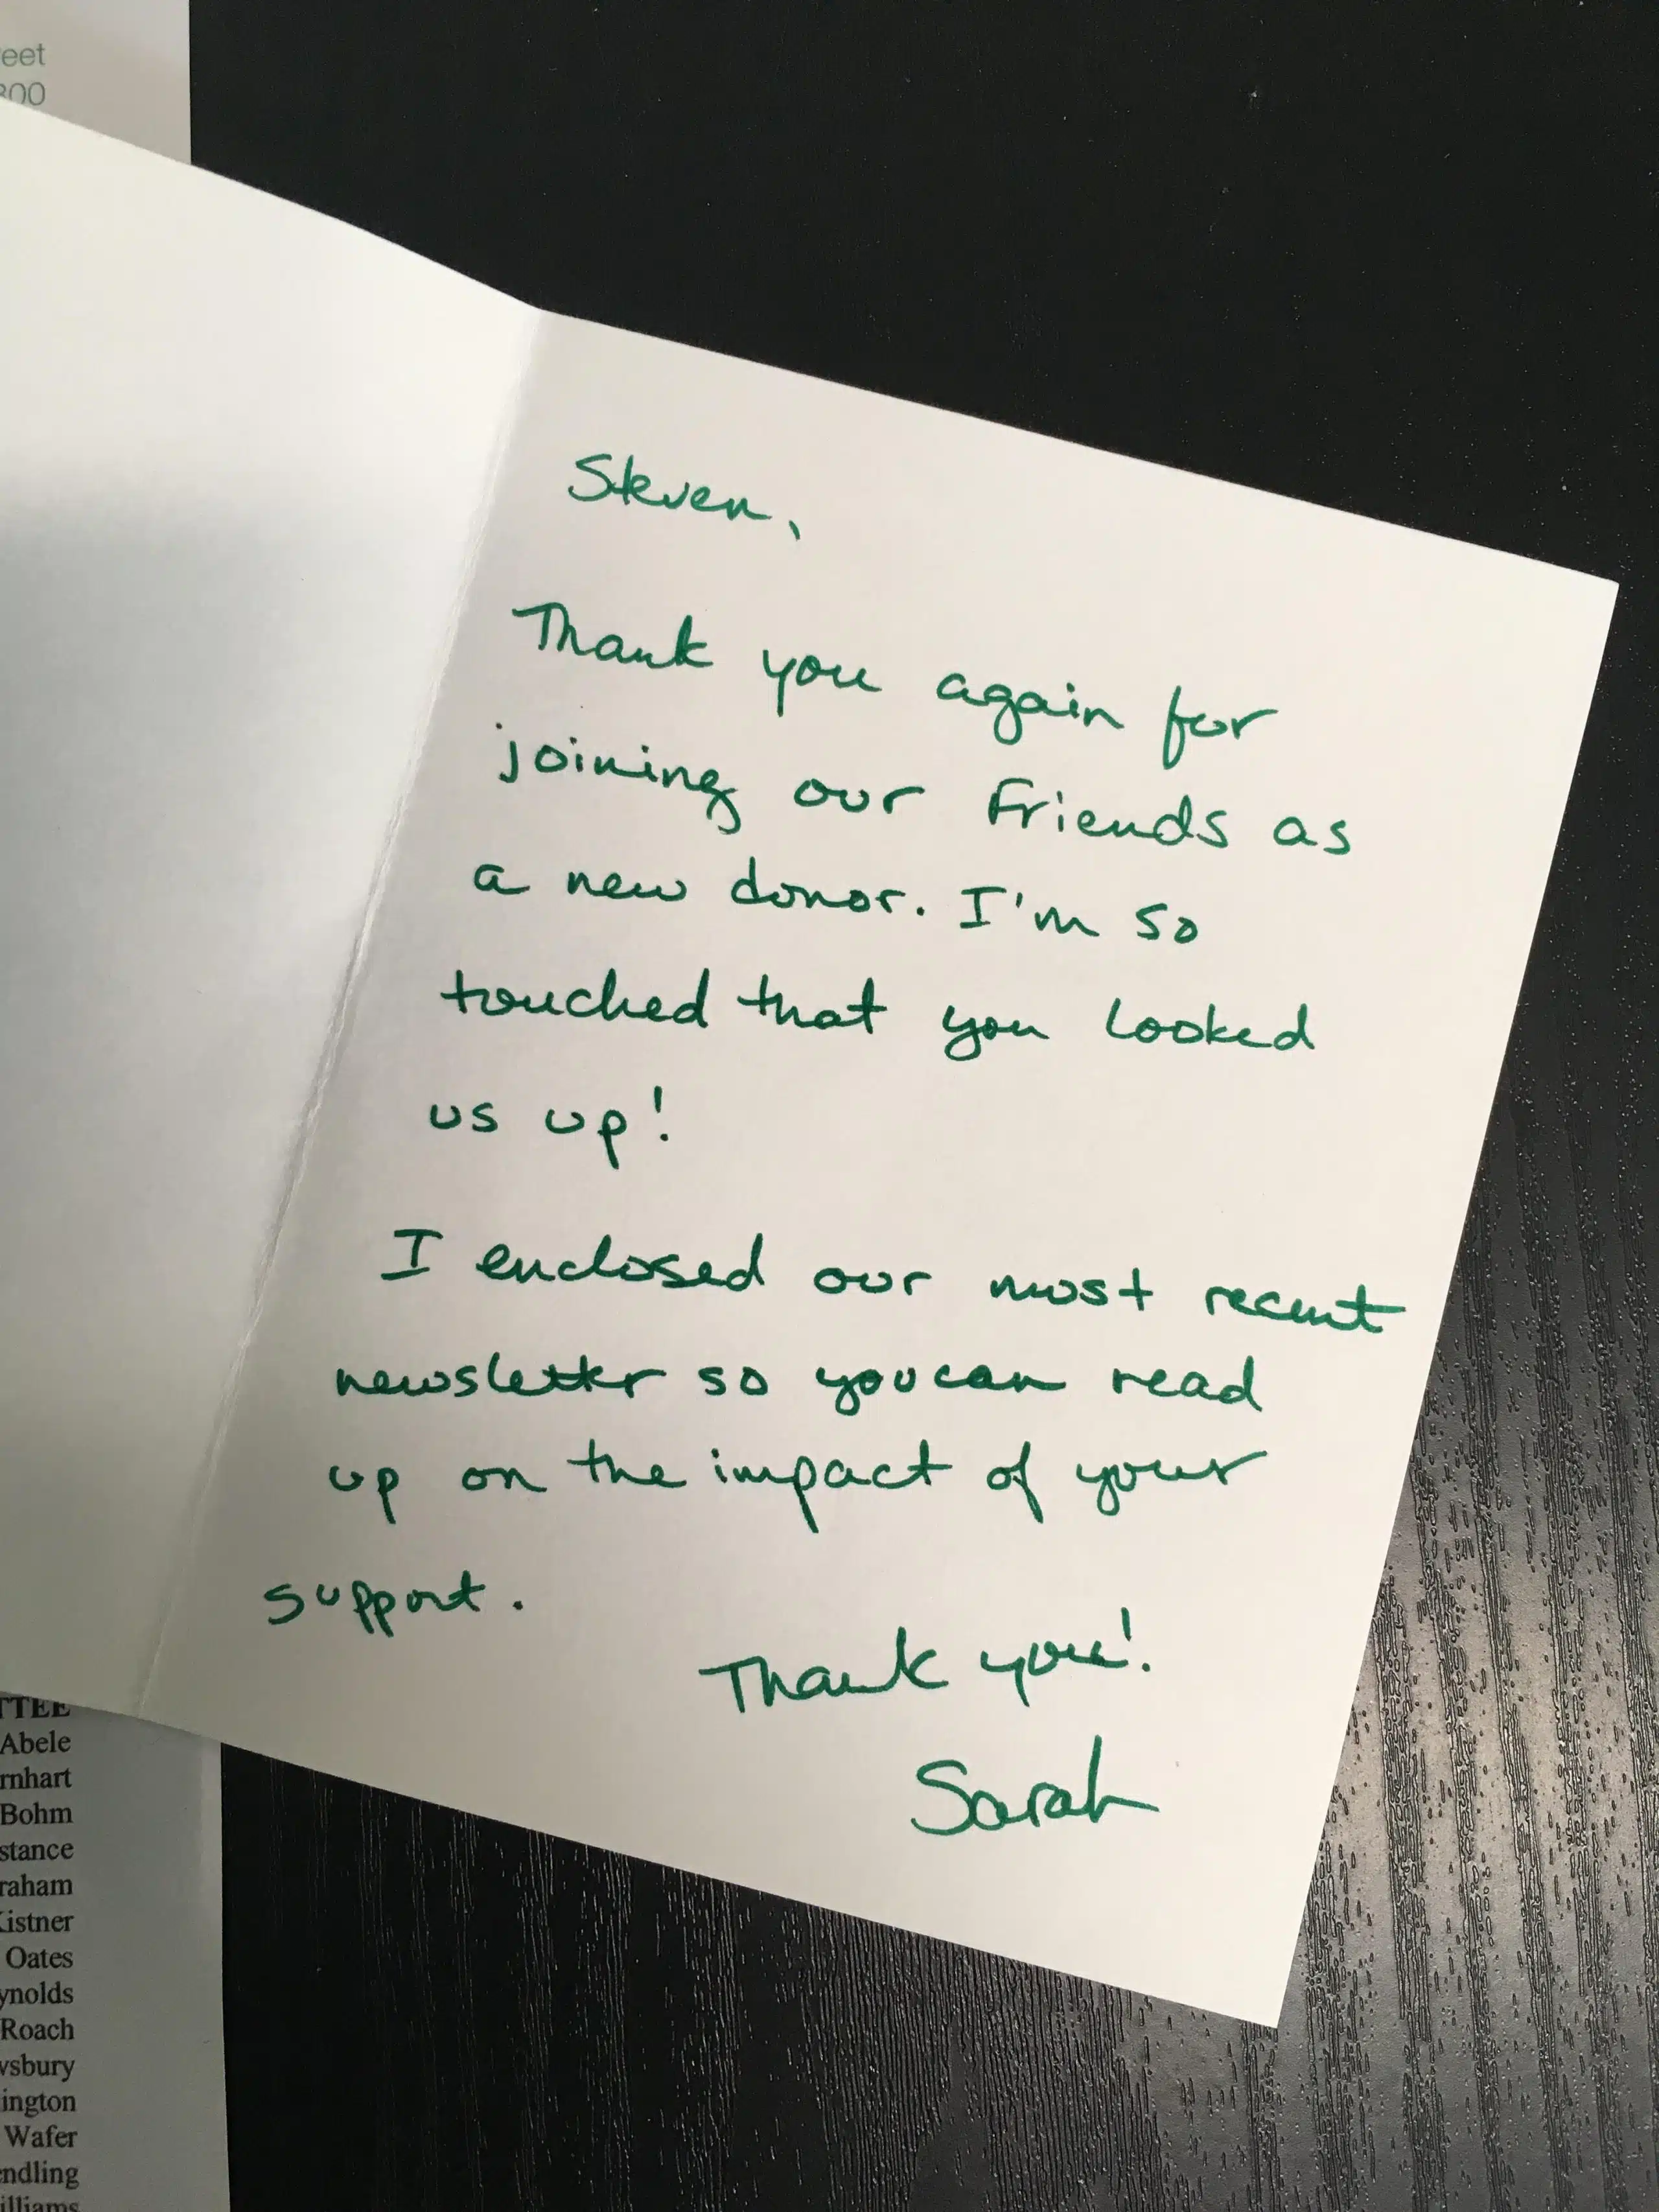 eet
300
Steven,
Thank you again for
joining our Friends as
a new donor. I'm so
touched that you looked
us up!
I enclosed our most recent
newsletter so you can read
up on the impact of your
support.
Thank you!
Sarah
TTEE
Abele
rnhart
Bohm
stance
raham
Kistner
Oates
ynolds
Roach
wsbury
ington
Wafer
endling
illiams